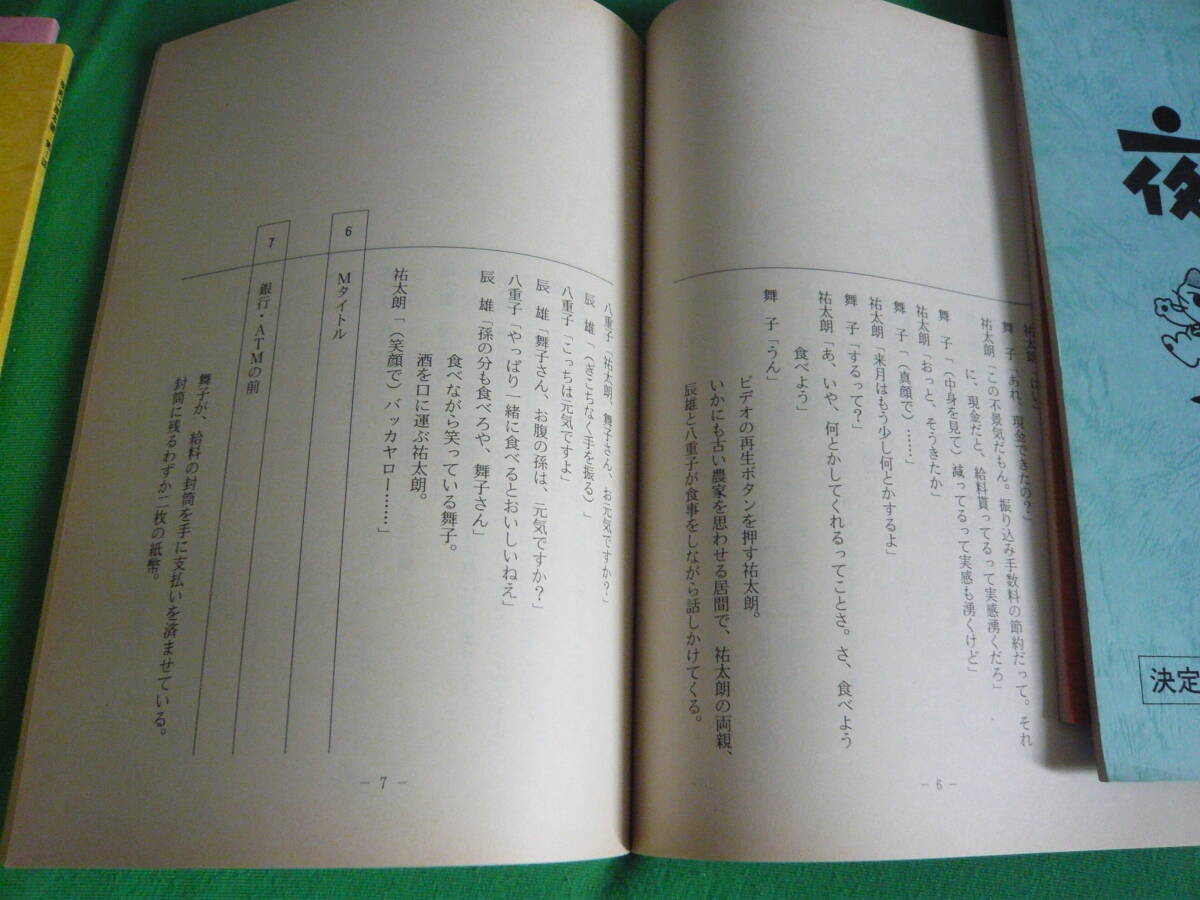 祐太朗「はい」
舞　子「あれ、現金できたの？」
祐太朗「この不景気だもん。振り込み手数料の節約だって。それ
に、現金だと、給料貰ってるって実感湧くだろ」
舞　子「（中身を見て）減ってるって実感も湧くけど」
祐太朗「おっと、そうきたか」
舞　子「（真顔で）……」
祐太朗「来月はもう少し何とかするよ」
舞　子「するって？」
祐太朗「あ、いや、何とかしてくれるってことさ。さ、食べよう
食べよう」
舞　子「うん」
ビデオの再生ボタンを押す祐太朗。
いかにも古い農家を思わせる居間で、祐太朗の両親、
辰雄と八重子が食事をしながら話しかけてくる。
－6－
八重子「祐太朗、舞子さん、お元気ですか？」
辰　雄「（ぎこちなく手を振る）」
八重子「こっちは元気ですよ」
辰　雄「舞子さん、お腹の孫は、元気ですか？」
八重子「やっぱり一緒に食べるとおいしいねえ」
辰　雄「孫の分も食べろや、舞子さん」
食べながら笑っている舞子。
酒を口に運ぶ祐太朗。
祐太朗「（笑顔で）バッカヤロー……」
6　Mタイトル
7　銀行・ATMの前
舞子が、給料の封筒を手に支払いを済ませている。
封筒に残るわずか二枚の紙幣。
－7－
決定